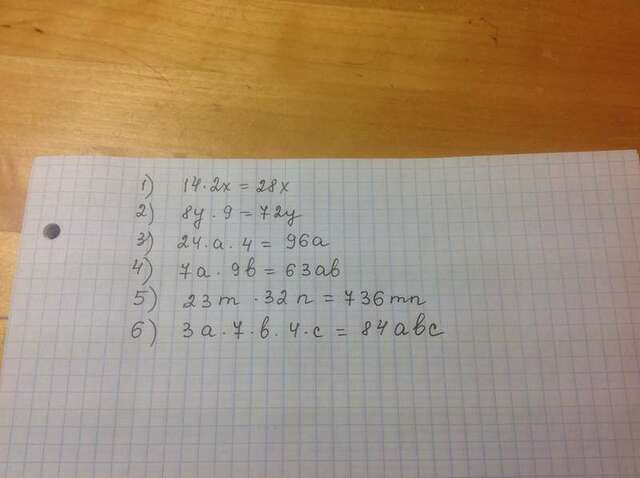 1) 14 · 2x = 28x
2) 8y · 9 = 72y
3) 24 · a · 4 = 96a
4) 7a · 9b = 63ab
5) 23m · 32n = 736mn
6) 3a · 7 · b · 4 · c = 84abc